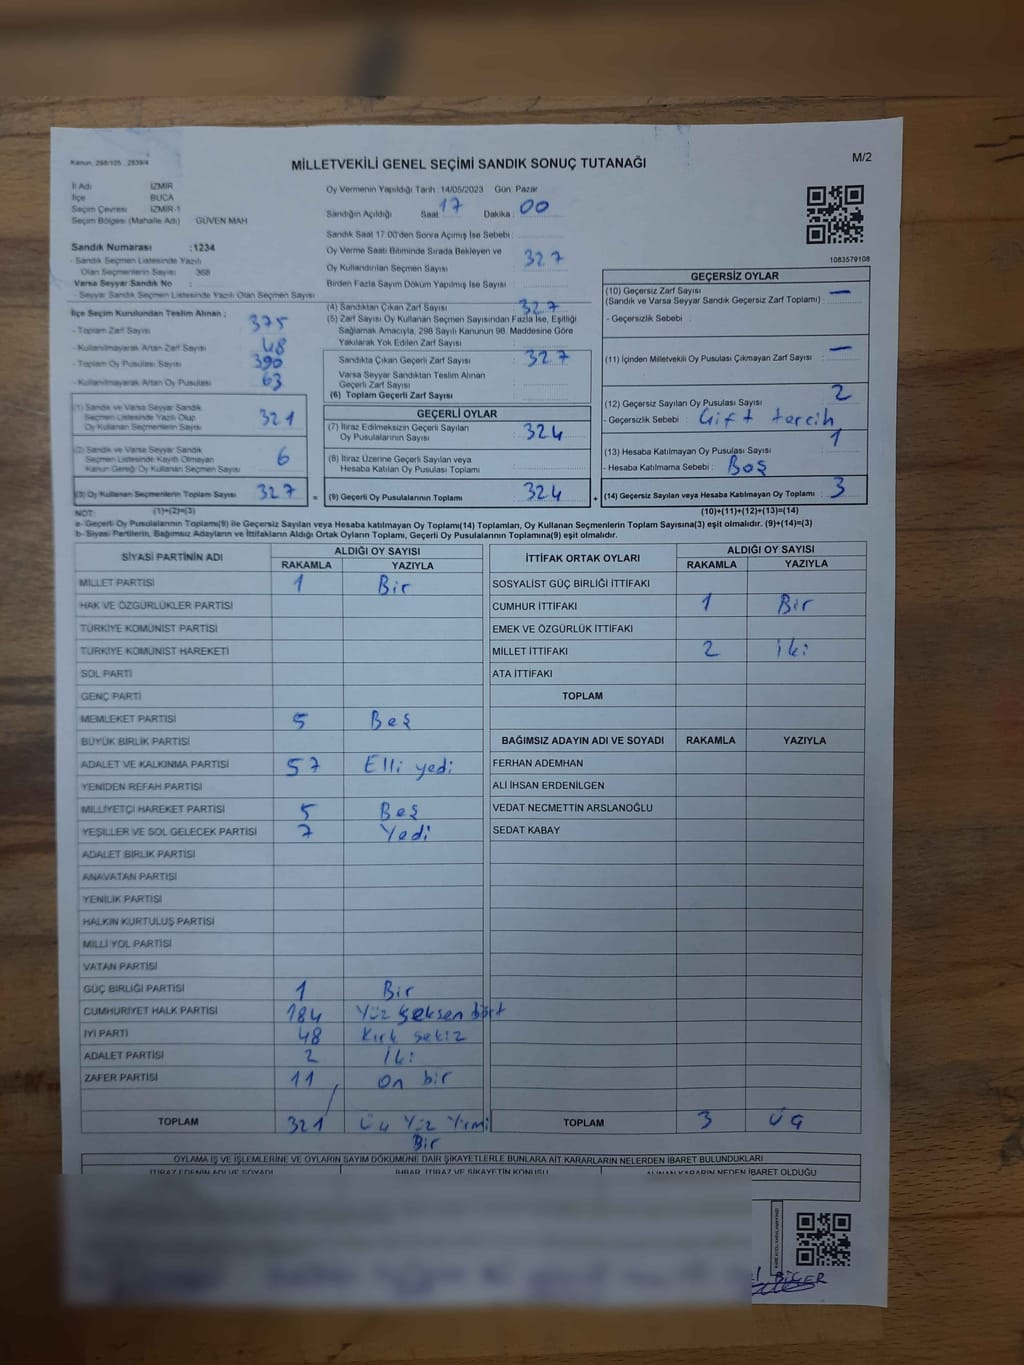 Kanun, 298/105 , 2839/4
MİLLETVEKİLİ GENEL SEÇİMİ SANDIK SONUÇ TUTANAĞI
M/2
İl Adı İZMİR
İlçe BUCA
Seçim Çevresi İZMİR-1
Seçim Bölgesi (Mahalle Adı) GÜVEN MAH
Sandık Numarası :1234
- Sandık Seçmen Listesinde Yazılı
Olan Seçmenlerin Sayısı 368
Varsa Seyyar Sandık No :
- Seyyar Sandık Seçmen Listesinde Yazılı Olan Seçmen Sayısı
İlçe Seçim Kurulundan Teslim Alınan ;
- Toplam Zarf Sayısı 375
- Kullanılmayarak Artan Zarf Sayısı 48
- Toplam Oy Pusulası Sayısı 390
- Kullanılmayarak Artan Oy Pusulası 63
(1) Sandık ve Varsa Seyyar Sandık
Seçmen Listesinde Yazılı Olup
Oy Kullanan Seçmenlerin Sayısı 321
(2) Sandık ve Varsa Seyyar Sandık
Seçmen Listesinde Kayıtlı Olmayan
Kanun Gereği Oy Kullanan Seçmen Sayısı 6
(3) Oy Kullanan Seçmenlerin Toplam Sayısı 327 =
Oy Vermenin Yapıldığı Tarih :14/05/2023 Gün: Pazar
Sandığın Açıldığı Saat: 17 Dakika : 00
Sandık Saat 17.00'den Sonra Açımış İse Sebebi :
Oy Verme Saati Bitiminde Sırada Bekleyen ve
Oy Kullandırılan Seçmen Sayısı : 327
Birden Fazla Sayım Döküm Yapılmış İse Sayısı :
(4) Sandıktan Çıkan Zarf Sayısı : 327
(5) Zarf Sayısı Oy Kullanan Seçmen Sayısından Fazla İse, Eşitliği
Sağlamak Amacıyla, 298 Sayılı Kanunun 98. Maddesine Göre
Yakılarak Yok Edilen Zarf Sayısı :
Sandıkta Çıkan Geçerli Zarf Sayısı : 327
Varsa Seyyar Sandıktan Teslim Alınan
Geçerli Zarf Sayısı :
(6) Toplam Geçerli Zarf Sayısı :
GEÇERLİ OYLAR
(7) İtiraz Edilmeksizin Geçerli Sayılan
Oy Pusulalarının Sayısı : 324
(8) İtiraz Üzerine Geçerli Sayılan veya
Hesaba Katılan Oy Pusulası Toplamı :
(9) Geçerli Oy Pusulalarının Toplamı : 324 +
1083579108
GEÇERSİZ OYLAR
(10) Geçersiz Zarf Sayısı
(Sandık ve Varsa Seyyar Sandık Geçersiz Zarf Toplamı) : —
- Geçersizlik Sebebi :
(11) İçinden Milletvekili Oy Pusulası Çıkmayan Zarf Sayısı : —
(12) Geçersiz Sayılan Oy Pusulası Sayısı : 2
- Geçersizlik Sebebi : Çift tercih
(13) Hesaba Katılmayan Oy Pusulası Sayısı : 1
- Hesaba Katılmama Sebebi : Boş
(14) Geçersiz Sayılan veya Hesaba Katılmayan Oy Toplamı : 3
NOT: (1)+(2)=(3) (10)+(11)+(12)+(13)=(14)
a- Geçerli Oy Pusulalarının Toplamı(9) ile Geçersiz Sayılan veya Hesaba katılmayan Oy Toplamı(14) Toplamları, Oy Kullanan Seçmenlerin Toplam Sayısına(3) eşit olmalıdır. (9)+(14)=(3)
b- Siyasi Partilerin, Bağımsız Adayların ve İttifakların Aldığı Ortak Oyların Toplamı, Geçerli Oy Pusulalarının Toplamına(9) eşit olmalıdır.
SİYASİ PARTİNİN ADI ALDIĞI OY SAYISI
RAKAMLA YAZIYLA
MİLLET PARTİSİ 1 Bir
HAK VE ÖZGÜRLÜKLER PARTİSİ
TÜRKİYE KOMÜNİST PARTİSİ
TÜRKİYE KOMÜNİST HAREKETİ
SOL PARTİ
GENÇ PARTİ
MEMLEKET PARTİSİ 5 Beş
BÜYÜK BİRLİK PARTİSİ
ADALET VE KALKINMA PARTİSİ 57 Elli yedi
YENİDEN REFAH PARTİSİ
MİLLİYETÇİ HAREKET PARTİSİ 5 Beş
YEŞİLLER VE SOL GELECEK PARTİSİ 7 Yedi
ADALET BİRLİK PARTİSİ
ANAVATAN PARTİSİ
YENİLİK PARTİSİ
HALKIN KURTULUŞ PARTİSİ
MİLLİ YOL PARTİSİ
VATAN PARTİSİ
GÜÇ BİRLİĞİ PARTİSİ 1 Bir
CUMHURİYET HALK PARTİSİ 184 Yüz Seksen dört
İYİ PARTİ 48 Kırk sekiz
ADALET PARTİSİ 2 İki
ZAFER PARTİSİ 11 On bir
TOPLAM 321 Üç Yüz Yirmi
Bir
İTTİFAK ORTAK OYLARI ALDIĞI OY SAYISI
RAKAMLA YAZIYLA
SOSYALİST GÜÇ BİRLİĞİ İTTİFAKI
CUMHUR İTTİFAKI 1 Bir
EMEK VE ÖZGÜRLÜK İTTİFAKI
MİLLET İTTİFAKI 2 iki
ATA İTTİFAKI
TOPLAM
BAĞIMSIZ ADAYIN ADI VE SOYADI RAKAMLA YAZIYLA
FERHAN ADEMHAN
ALİ İHSAN ERDENİLGEN
VEDAT NECMETTİN ARSLANOĞLU
SEDAT KABAY
TOPLAM 3 Üç
OYLAMA İŞ VE İŞLEMLERİNE VE OYLARIN SAYIM DÖKÜMÜNE DAİR ŞİKAYETLERLE BUNLARA AİT KARARLARIN NELERDEN İBARET BULUNDUKLARI
İTİRAZ EDENİN ADI VE SOYADI İHBAR, İTİRAZ VE ŞİKAYETİN KONUSU ALINAN KARARIN NEDEN İBARET OLDUĞU